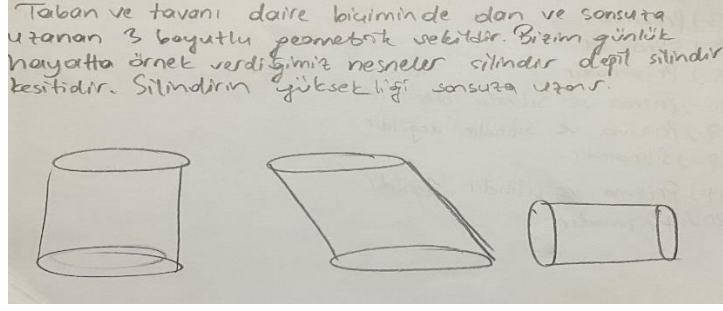 Taban ve tavanı daire biçiminde olan ve sonsuza
uzanan 3 boyutlu geometrik şekildir. Bizim günlük
hayatta örnek verdiğimiz nesneler silindir değil silindir
kesitidir. Silindirin yüksekliği sonsuza uzanır.